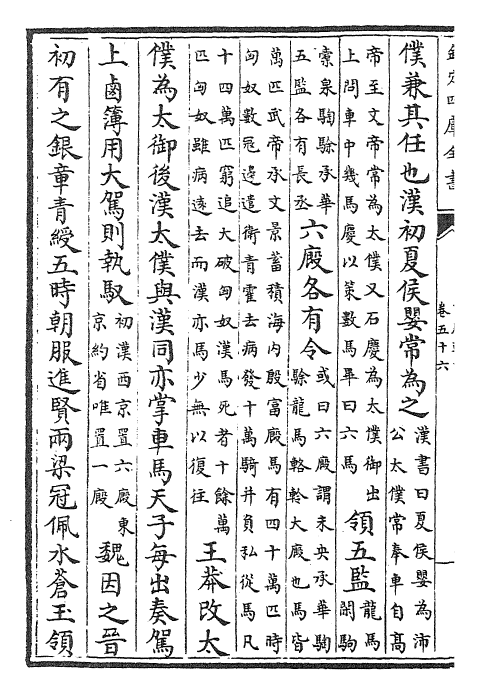 欽定四庫全書
卷五十六
僕兼其任也漢初夏侯嬰常為之漢書曰夏侯嬰為沛公太僕常奉車自高
帝至文帝常為太僕又石慶為太僕御出上問車中幾馬慶以策數馬畢曰六馬領五監龍馬閑駒
橐泉騊駼承華五監各有長丞六廄各有令或曰六廄謂未央承華騊駼龍馬輅軨大廄也馬皆
萬匹武帝承文景蓄積海内殷富廄馬有四十萬匹時匈奴數冦邊遣衛青霍去病發十萬騎并負私從馬凡
十四萬匹窮追大破匈奴漢馬死者十餘萬匹匈奴雖病逺去而漢亦馬少無以復往王莽改太
僕為太御後漢太僕與漢同亦掌車馬天子每出奏駕
上鹵簿用大駕則執馭初漢西京置六廄東京約省唯置一廄魏因之晉
初有之銀章青綬五時朝服進賢兩梁冠佩水蒼玉領